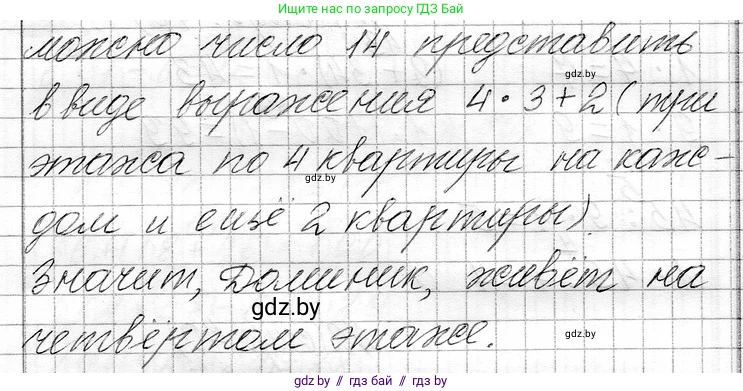 Пишите нам по запросу ГДЗ Бай
можно число 14 представить
gdz.by
в виде выражения 4 · 3 + 2 (три
этажа по 4 квартиры на каж-
gdz.by
дом и ещё 2 квартиры).
Значит, Доминик, живёт на
gdz.by
четвёртом этаже.
gdz.by
gdz.by // гдз бай // gdz.by